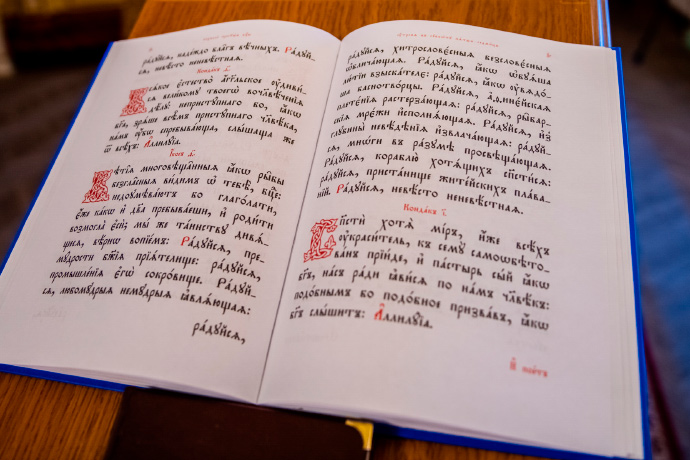 ра́дꙋйсѧ, наде́ждо бла̑гъ вѣ́чныхъ. Ра́дꙋй-
сѧ, невѣ́сто неневѣ́стнаѧ.
Конда́къ
Всѧ́кое є҆стество̀ а҆́гг҃льское ᲂу҆диви́-
сѧ вели́комꙋ твоегѡ̀ вочл҃вѣ́ченїѧ
дѣ́лꙋ: непристꙋ́пнаго бо, ꙗ҆́кѡ
бг҃а, зрѧ́ще всѣ̑мъ пристꙋ́пнаго чл҃вѣ́ка,
на́мъ ᲂу҆́бѡ спребыва́юща, слы́шаща же
ѿ всѣ́хъ: А҆ллилꙋ́їа.
І҆́косъ
Вѣті̑ѧ многовѣща̑нныѧ, ꙗ҆́кѡ ры̑бы
безгла̑сныѧ ви́димъ ѡ҆ тебѣ̀, бц҃е:
недоꙋмѣва́ютъ бо глаго́лати,
є҆́же ка́кѡ и҆ дв҃а пребыва́еши, и҆ роди́ти
возмогла̀ є҆сѝ; мы́ же та́инствꙋ дивѧ́-
щесѧ, вѣ́рнѡ вопїе́мъ: Ра́дꙋйсѧ, пре-
мꙋ́дрости бж҃їѧ прїѧ́телище: ра́дꙋйсѧ,
промышле́нїѧ є҆гѡ̀ сокро́вище. Ра́дꙋй-
сѧ, любомꙋ̑дрыѧ немꙋ̑дрыѧ ꙗ҆влѧ́ющаѧ:
ра́дꙋйсѧ,
ра́дꙋйсѧ, хитрослове́сныѧ безслове́сныѧ
ѡ҆блича́ющаѧ. Ра́дꙋйсѧ, ꙗ҆́кѡ ѡ҆бꙋѧ́ша
лю́тїи взыска́телє: ра́дꙋйсѧ, ꙗ҆́кѡ ᲂу҆вѧдо́-
ша баснотво́рцы. Ра́дꙋйсѧ, а҆ѳине́йскаѧ
плетє́нїѧ растерза́ющаѧ: ра́дꙋйсѧ, рыба́р-
скїѧ мрє́жи и҆сполнѧ́ющаѧ. Ра́дꙋйсѧ, и҆з̾
глꙋбины̀ невѣ́дѣнїѧ и҆звлача́ющаѧ: ра́дꙋй-
сѧ, мнѡ́ги въ ра́зꙋмѣ просвѣща́ющаѧ.
Ра́дꙋйсѧ, кораблю̀ хотѧ́щихъ сп҃сти́сѧ:
ра́дꙋйсѧ, приста́нище жите́йскихъ пла́ва-
нїй. Ра́дꙋйсѧ, невѣ́сто неневѣ́стнаѧ.
Конда́къ і҃.
Сп҃стѝ хотѧ̀ мі́ръ, и҆́же всѣ́хъ
ᲂу҆краси́тель, къ семꙋ̀ самоѡбѣто-
ва́нъ прїи́де, и҆ па́стырь сы́й ꙗ҆́кѡ
бг҃ъ, на́съ ра́ди ꙗ҆ви́сѧ по на́мъ чл҃вѣ́къ:
подо́бнымъ бо подо́бное призва́въ, ꙗ҆́кѡ
бг҃ъ слы́шитъ: А҆ллилꙋ́їа.
И҆ пое́тъ